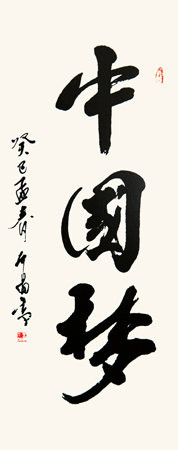 中國梦
癸巳孟春